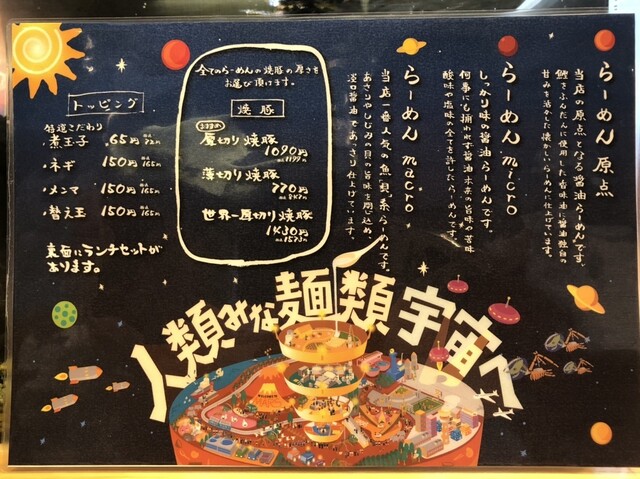 らーめん 原点
当店の原点となる醤油らーめんです。
鰹をふんだんに使用した香味油に醤油独自の
甘みを活かした懐かしいらーめんに仕上げています。
らーめん micro
しっかり味の醤油らーめんです。
何事にも捕われず醤油本来の旨味や苦味
酸味や塩味の全てを許したらーめんです。
らーめん macro
当店一番人気の魚貝系らーめんです。
あさりやしじみの貝の旨味を閉じ込め
淡口醤油であっさり仕上げています。
全てのらーめんの焼豚の厚さを
お選び頂けます。
焼豚
おすすめ
厚切り焼豚
1090円
税込1199円
薄切り焼豚
770円
税込847円
世界一厚切り焼豚
1430円
税込1573円
トッピング
特選こだわり
・煮玉子 65円 税込72円
・ネギ 150円 税込165円
・メンマ 150円 税込165円
・替え玉 150円 税込165円
裏面にランチセットが
あります。
人類みな麺類宇宙へ